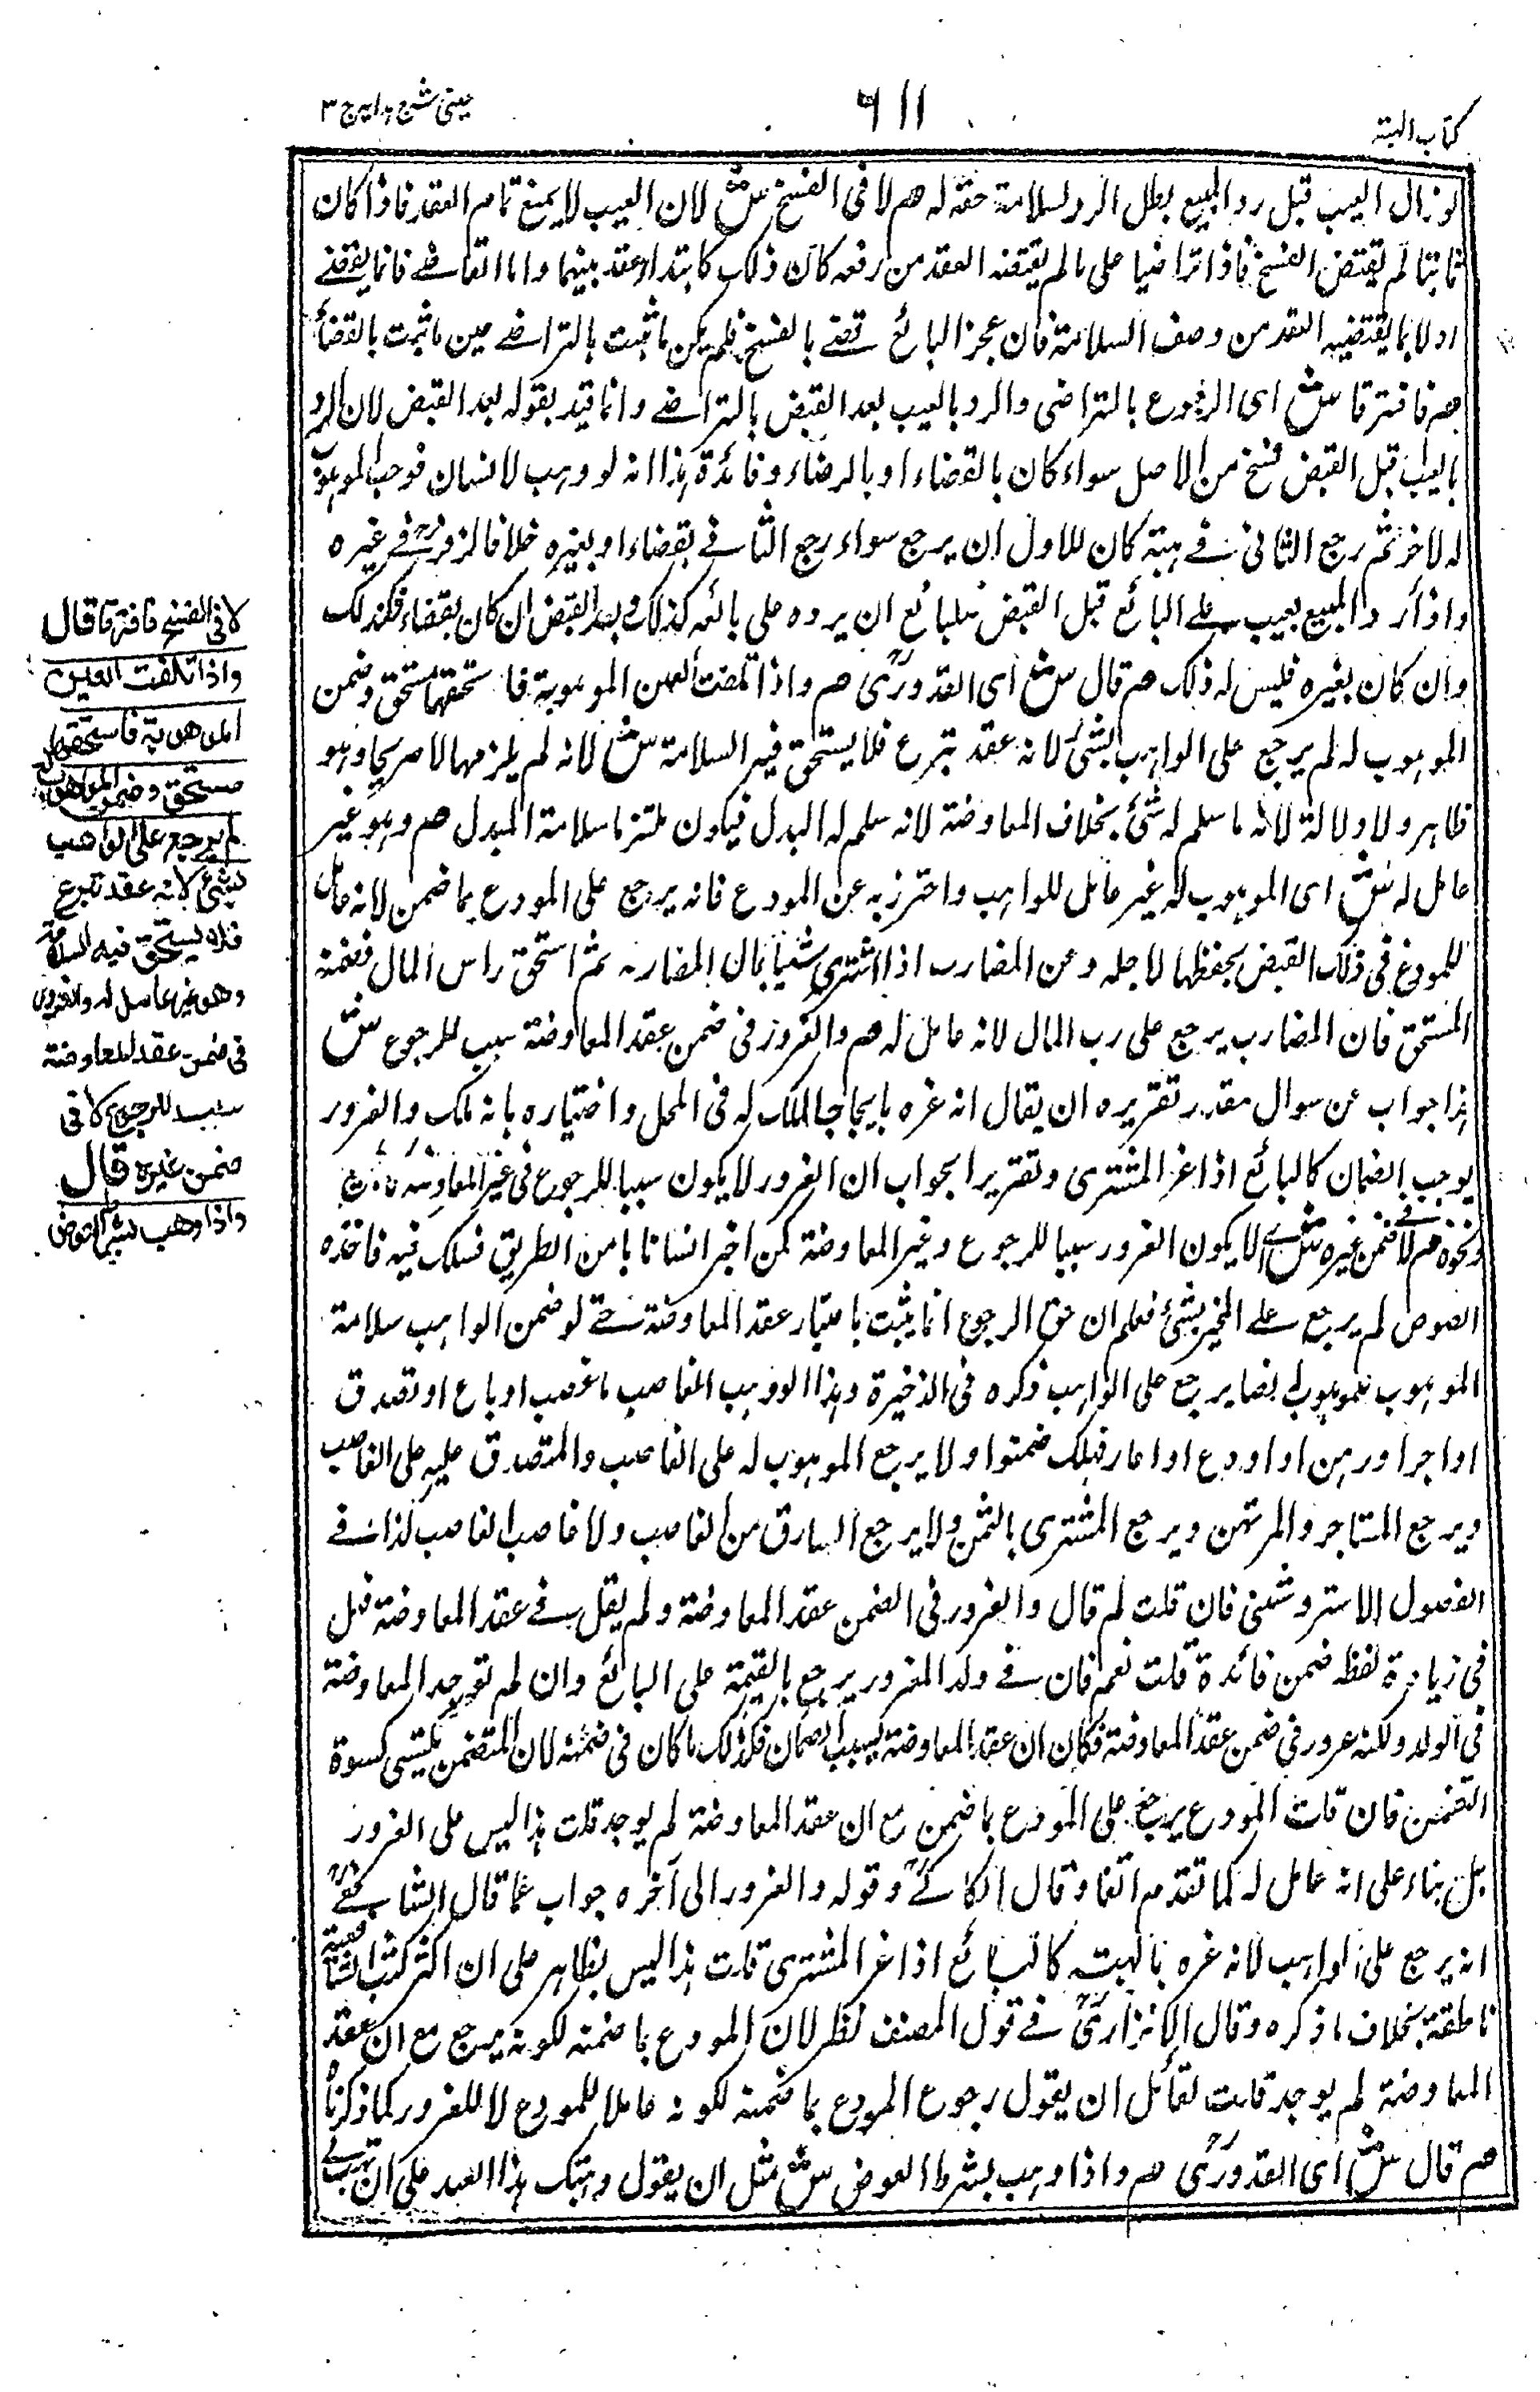 كتاب الهبة
٦١١
عينى شرح هدايه ج ٣
لو زال العيب قبل رد المبيع بطل الرد لسلامة حقه له هم لا فى الفسخ ش لان العيب لا يمنع تمام العقد فاذا كان
ثابتا لم يقتض الفسخ فاذا تراضيا على ما لم يقتضه العقد من رفعه كان ذلك كابتداء عقد بينهما واما القاضى فانما يقضى
اولا بما يقتضيه العقد من وصف السلامة فان عجز البائع قضى بالفسخ فلم يكن ما ثبت بالتراضى عين ما ثبت بالقضاء
هم فافترقا ش اى الرجوع بالتراضى والرد بالعيب بعد القبض بالتراضى وانما قيد بقوله بعد القبض لان الرد
بالعيب قبل القبض فسخ من الاصل سواء كان بالقضاء او بالرضاء وفائدة هذا انه لو وهب لانسان فوهب الموهوب
له لاخر ثم رجع الثانى فى هبته كان للاول ان يرجع سواء رجع الثانى بقضاء او بغيره خلافا لزفر فى غيره
واذا رد المبيع بعيب على البائع قبل القبض فللبائع ان يرده على بائعه كذلك وبعد القبض ان كان بقضاء فكذلك
وان كان بغيره فليس له ذلك هم قال ش اى القدورى هم واذا تلفت العين الموهوبة فاستحقها مستحق وضمن
الموهوب له لم يرجع على الواهب بشئ لانه عقد تبرع فلا يستحق فيه السلامة ش لانه لم يلزمها لا صريحا وهو
ظاهر ولا دلالة لانه ما سلم له شئ بخلاف المعاوضة لانه سلم له البدل فيكون ملتزما سلامة المبدل هم وهو غير
عامل له ش اى الموهوب له غير عامل للواهب واحترز به عن المودع فانه يرجع على المودع بما ضمن لانه عامل
للمودع فى ذلك القبض بحفظها لاجله وعن المضارب اذا اشترى شيئا بمال المضاربة ثم استحق راس المال فضمنه
المستحق فان المضارب يرجع على رب المال لانه عامل له هم والغرور فى ضمن عقد المعاوضة سبب للرجوع ش
هذا جواب عن سوال مقدر تقريره ان يقال انه غره بايجاب الملك له فى المحل واختياره بانه ملك والغرور
يوجب الضمان كالبائع اذا غر المشترى وتقرير الجواب ان الغرور لا يكون سببا للرجوع فى غير المعاوضة
ونحوه هم لا فى ضمن غيره ش اى لا يكون الغرور سببا للرجوع وغير المعاوضة كمن اخبر انسانا بامن الطريق فسلك فيه فاخذه
اللصوص لم يرجع على المخبر بشئ فعلم ان حق الرجوع انما يثبت باعتبار عقد المعاوضة حتى لو ضمن الواهب سلامة
الموهوب للموهوب له نصا يرجع على الواهب ذكره فى الذخيرة وهذا لو وهب الغاصب ما غصب او باع او تصدق
او اجر او رهن او اودع او اعار فهلك ضمنوا ولا يرجع الموهوب له على الغاصب والمتصدق عليه على الغاصب
ويرجع المستاجر والمرتهن ويرجع المشترى بالثمن ولا يرجع السارق من الغاصب ولا غاصب الغاصب كذا فى
الفصول الاستروشنى فان قلت لم قال والغرور فى الضمن عقد المعاوضة ولم يقل فى عقد المعاوضة فهل
فى زيادة لفظ ضمن فائدة قلت نعم فان فى ولد المغرور يرجع بالقيمة على البائع وان لم توجد المعاوضة
فى الولد ولكنه غرور فى ضمن عقد المعاوضة فكان ان عقد المعاوضة بسبب الضمان فكذلك ما كان فى ضمنه لان المتضمن يكتسى كسوة
التضمن فان قلت المودع يرجع على المودع بما ضمن مع ان عقد المعاوضة لم يوجد قلت هذا ليس على الغرور
بل بناء على انه عامل له كما تقدم آنفا وقال الكاكى وقوله والغرور الى آخره جواب عما قال الشافعى
انه يرجع على الواهب لانه غره بالهبة كالبائع اذا غر المشترى قلت هذا ليس بظاهر على ان اكثر كتب الشافعية
ناطقة بخلاف ما ذكره وقال الاترازى فى قول المصنف نظر لان المودع بما ضمنه لكونه يرجع مع ان عقد
المعاوضة لم يوجد قلت لقائل ان يقول رجوع المودع بما ضمنه لكونه عاملا للمودع لا للغرور كما ذكرنا
هم قال ش اى القدورى هم واذا وهب بشرط العوض ش مثل ان يقول وهبتك هذا العبد على ان تهب لى
لا فى الفسخ فافترقا قال
واذا تلفت العين
الموهوبة فاستحقها
مستحق وضمن الموهوب له
لم يرجع على الواهب
بشئ لانه عقد تبرع
فلا يستحق فيه السلامة
وهو غير عامل له والغرور
فى ضمن عقد المعاوضة
سبب للرجوع لا فى
ضمن غيره قال
واذا وهب بشرط العوض